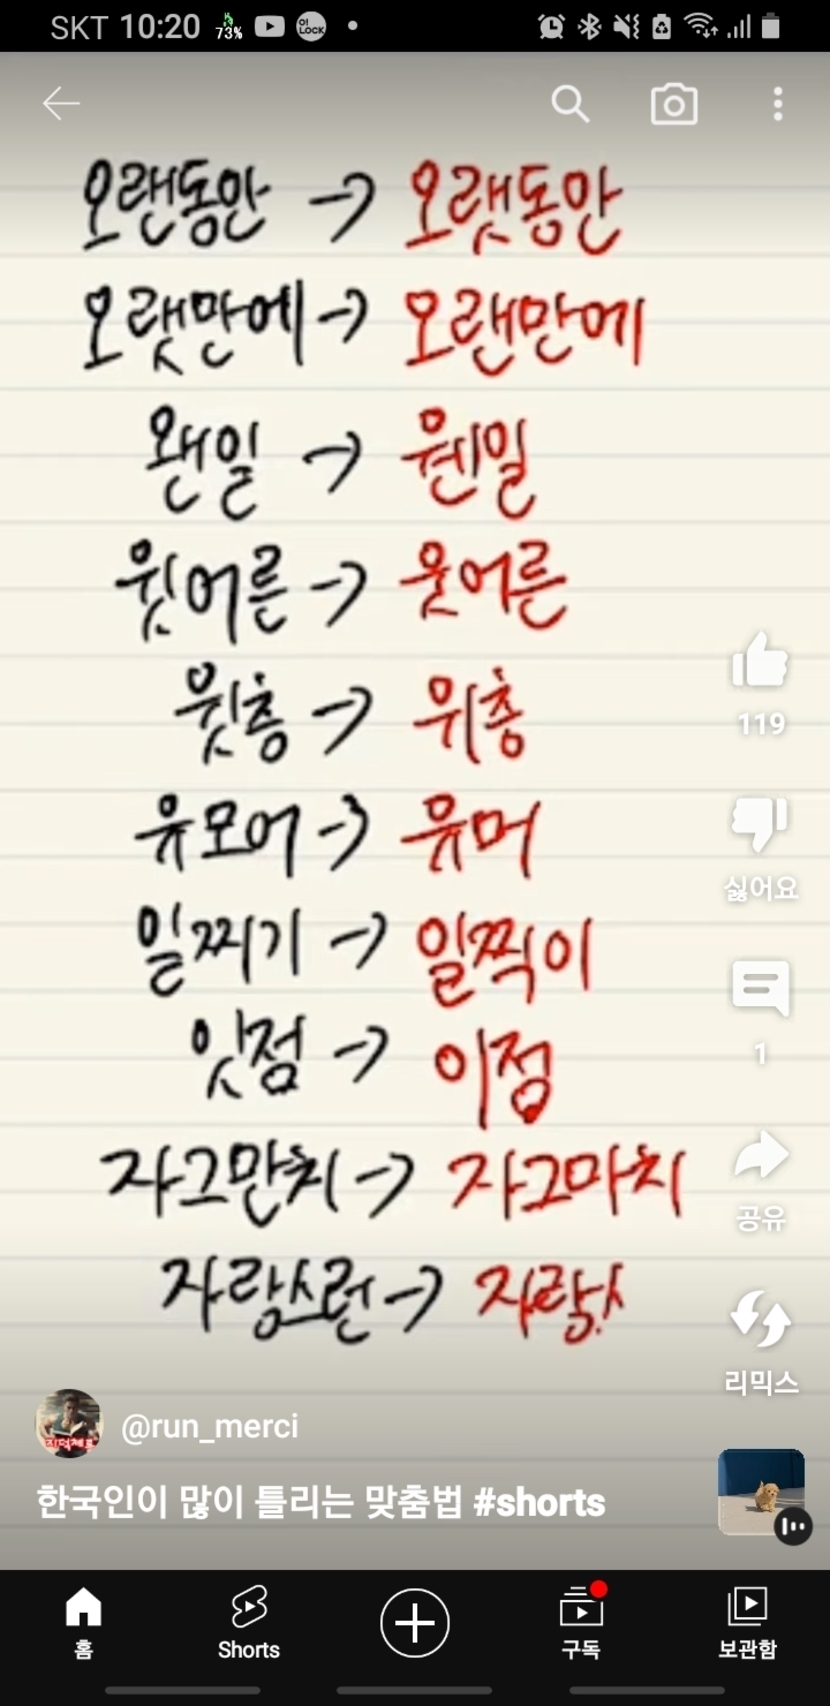 SKT 10:20 73% O! LOCK
오랜동안 → 오랫동안
오랫만에 → 오랜만에
왠일 → 웬일
윗어른 → 웃어른
윗층 → 위층
119
유모어 → 유머
싫어요
일찌기 → 일찍이
잇점 → 이점
1
자그만치 → 자그마치
공유
자랑스런 → 자랑스
리믹스
@run_merci
한국인이 많이 틀리는 맞춤법 #shorts
홈 Shorts 구독 보관함